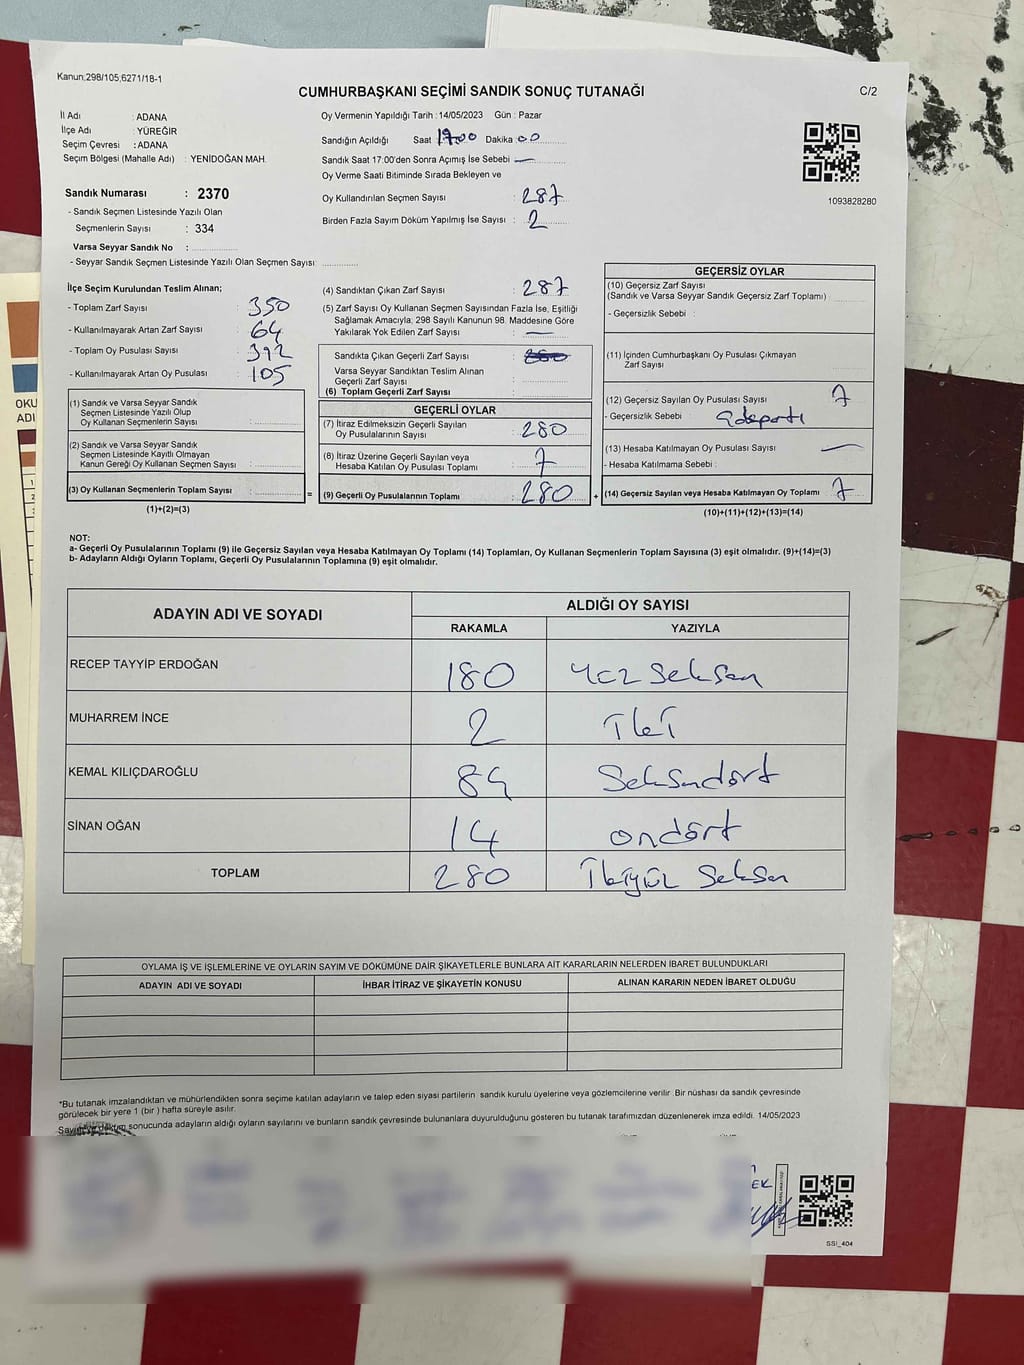 Kanun;298/105,6271/18-1
CUMHURBAŞKANI SEÇİMİ SANDIK SONUÇ TUTANAĞI
C/2
İl Adı : ADANA
İlçe Adı : YÜREĞİR
Seçim Çevresi : ADANA
Seçim Bölgesi (Mahalle Adı) : YENİDOĞAN MAH.
Sandık Numarası : 2370
- Sandık Seçmen Listesinde Yazılı Olan
Seçmenlerin Sayısı : 334
Varsa Seyyar Sandık No :
- Seyyar Sandık Seçmen Listesinde Yazılı Olan Seçmen Sayısı:
Oy Vermenin Yapıldığı Tarih : 14/05/2023 Gün : Pazar
Sandığın Açıldığı Saat 17.00 Dakika : 00
Sandık Saat 17:00'den Sonra Açımış İse Sebebi —
Oy Verme Saati Bitiminde Sırada Bekleyen ve
Oy Kullandırılan Seçmen Sayısı : 287
Birden Fazla Sayım Döküm Yapılmış İse Sayısı : 2
1093828280
İlçe Seçim Kurulundan Teslim Alınan;
- Toplam Zarf Sayısı : 350
- Kullanılmayarak Artan Zarf Sayısı : 64
- Toplam Oy Pusulası Sayısı : 392
- Kullanılmayarak Artan Oy Pusulası : 105
(1) Sandık ve Varsa Seyyar Sandık
Seçmen Listesinde Yazılı Olup
Oy Kullanan Seçmenlerin Sayısı :
(2) Sandık ve Varsa Seyyar Sandık
Seçmen Listesinde Kayıtlı Olmayan
Kanun Gereği Oy Kullanan Seçmen Sayısı :
(3) Oy Kullanan Seçmenlerin Toplam Sayısı :
(1)+(2)=(3)
=
(4) Sandıktan Çıkan Zarf Sayısı : 287
(5) Zarf Sayısı Oy Kullanan Seçmen Sayısından Fazla İse, Eşitliği
Sağlamak Amacıyla, 298 Sayılı Kanunun 98. Maddesine Göre
Yakılarak Yok Edilen Zarf Sayısı : —
Sandıkta Çıkan Geçerli Zarf Sayısı :
Varsa Seyyar Sandıktan Teslim Alınan
Geçerli Zarf Sayısı :
(6) Toplam Geçerli Zarf Sayısı :
GEÇERLİ OYLAR
(7) İtiraz Edilmeksizin Geçerli Sayılan
Oy Pusulalarının Sayısı : 280
(8) İtiraz Üzerine Geçerli Sayılan veya
Hesaba Katılan Oy Pusulası Toplamı : 7
(9) Geçerli Oy Pusulalarının Toplamı : 280
+
GEÇERSİZ OYLAR
(10) Geçersiz Zarf Sayısı
(Sandık ve Varsa Seyyar Sandık Geçersiz Zarf Toplamı) :
- Geçersizlik Sebebi :
(11) İçinden Cumhurbaşkanı Oy Pusulası Çıkmayan
Zarf Sayısı :
(12) Geçersiz Sayılan Oy Pusulası Sayısı : 7
- Geçersizlik Sebebi :
(13) Hesaba Katılmayan Oy Pusulası Sayısı : —
- Hesaba Katılmama Sebebi :
(14) Geçersiz Sayılan veya Hesaba Katılmayan Oy Toplamı : 7
(10)+(11)+(12)+(13)=(14)
NOT:
a- Geçerli Oy Pusulalarının Toplamı (9) ile Geçersiz Sayılan veya Hesaba Katılmayan Oy Toplamı (14) Toplamları, Oy Kullanan Seçmenlerin Toplam Sayısına (3) eşit olmalıdır. (9)+(14)=(3)
b- Adayların Aldığı Oyların Toplamı, Geçerli Oy Pusulalarının Toplamına (9) eşit olmalıdır.
ADAYIN ADI VE SOYADI
ALDIĞI OY SAYISI
RAKAMLA YAZIYLA
RECEP TAYYİP ERDOĞAN 180 Yüz Seksen
MUHARREM İNCE 2 İki
KEMAL KILIÇDAROĞLU 84 Seksendört
SİNAN OĞAN 14 ondört
TOPLAM 280 İkiyüz Seksen
OYLAMA İŞ VE İŞLEMLERİNE VE OYLARIN SAYIM VE DÖKÜMÜNE DAİR ŞİKAYETLERLE BUNLARA AİT KARARLARIN NELERDEN İBARET BULUNDUKLARI
ADAYIN ADI VE SOYADI İHBAR İTİRAZ VE ŞİKAYETİN KONUSU ALINAN KARARIN NEDEN İBARET OLDUĞU
*Bu tutanak imzalandıktan ve mühürlendikten sonra seçime katılan adayların ve talep eden siyasi partilerin sandık kurulu üyelerine veya gözlemcilerine verilir. Bir nüshası da sandık çevresinde
görülecek bir yere 1 (bir ) hafta süreyle asılır.
sonucunda adayların aldığı oyların sayılarını ve bunların sandık çevresinde bulunanlara duyurulduğunu gösteren bu tutanak tarafımızdan düzenlenerek imza edildi. 14/05/2023
EK
SSİ_404
OKU
ADI